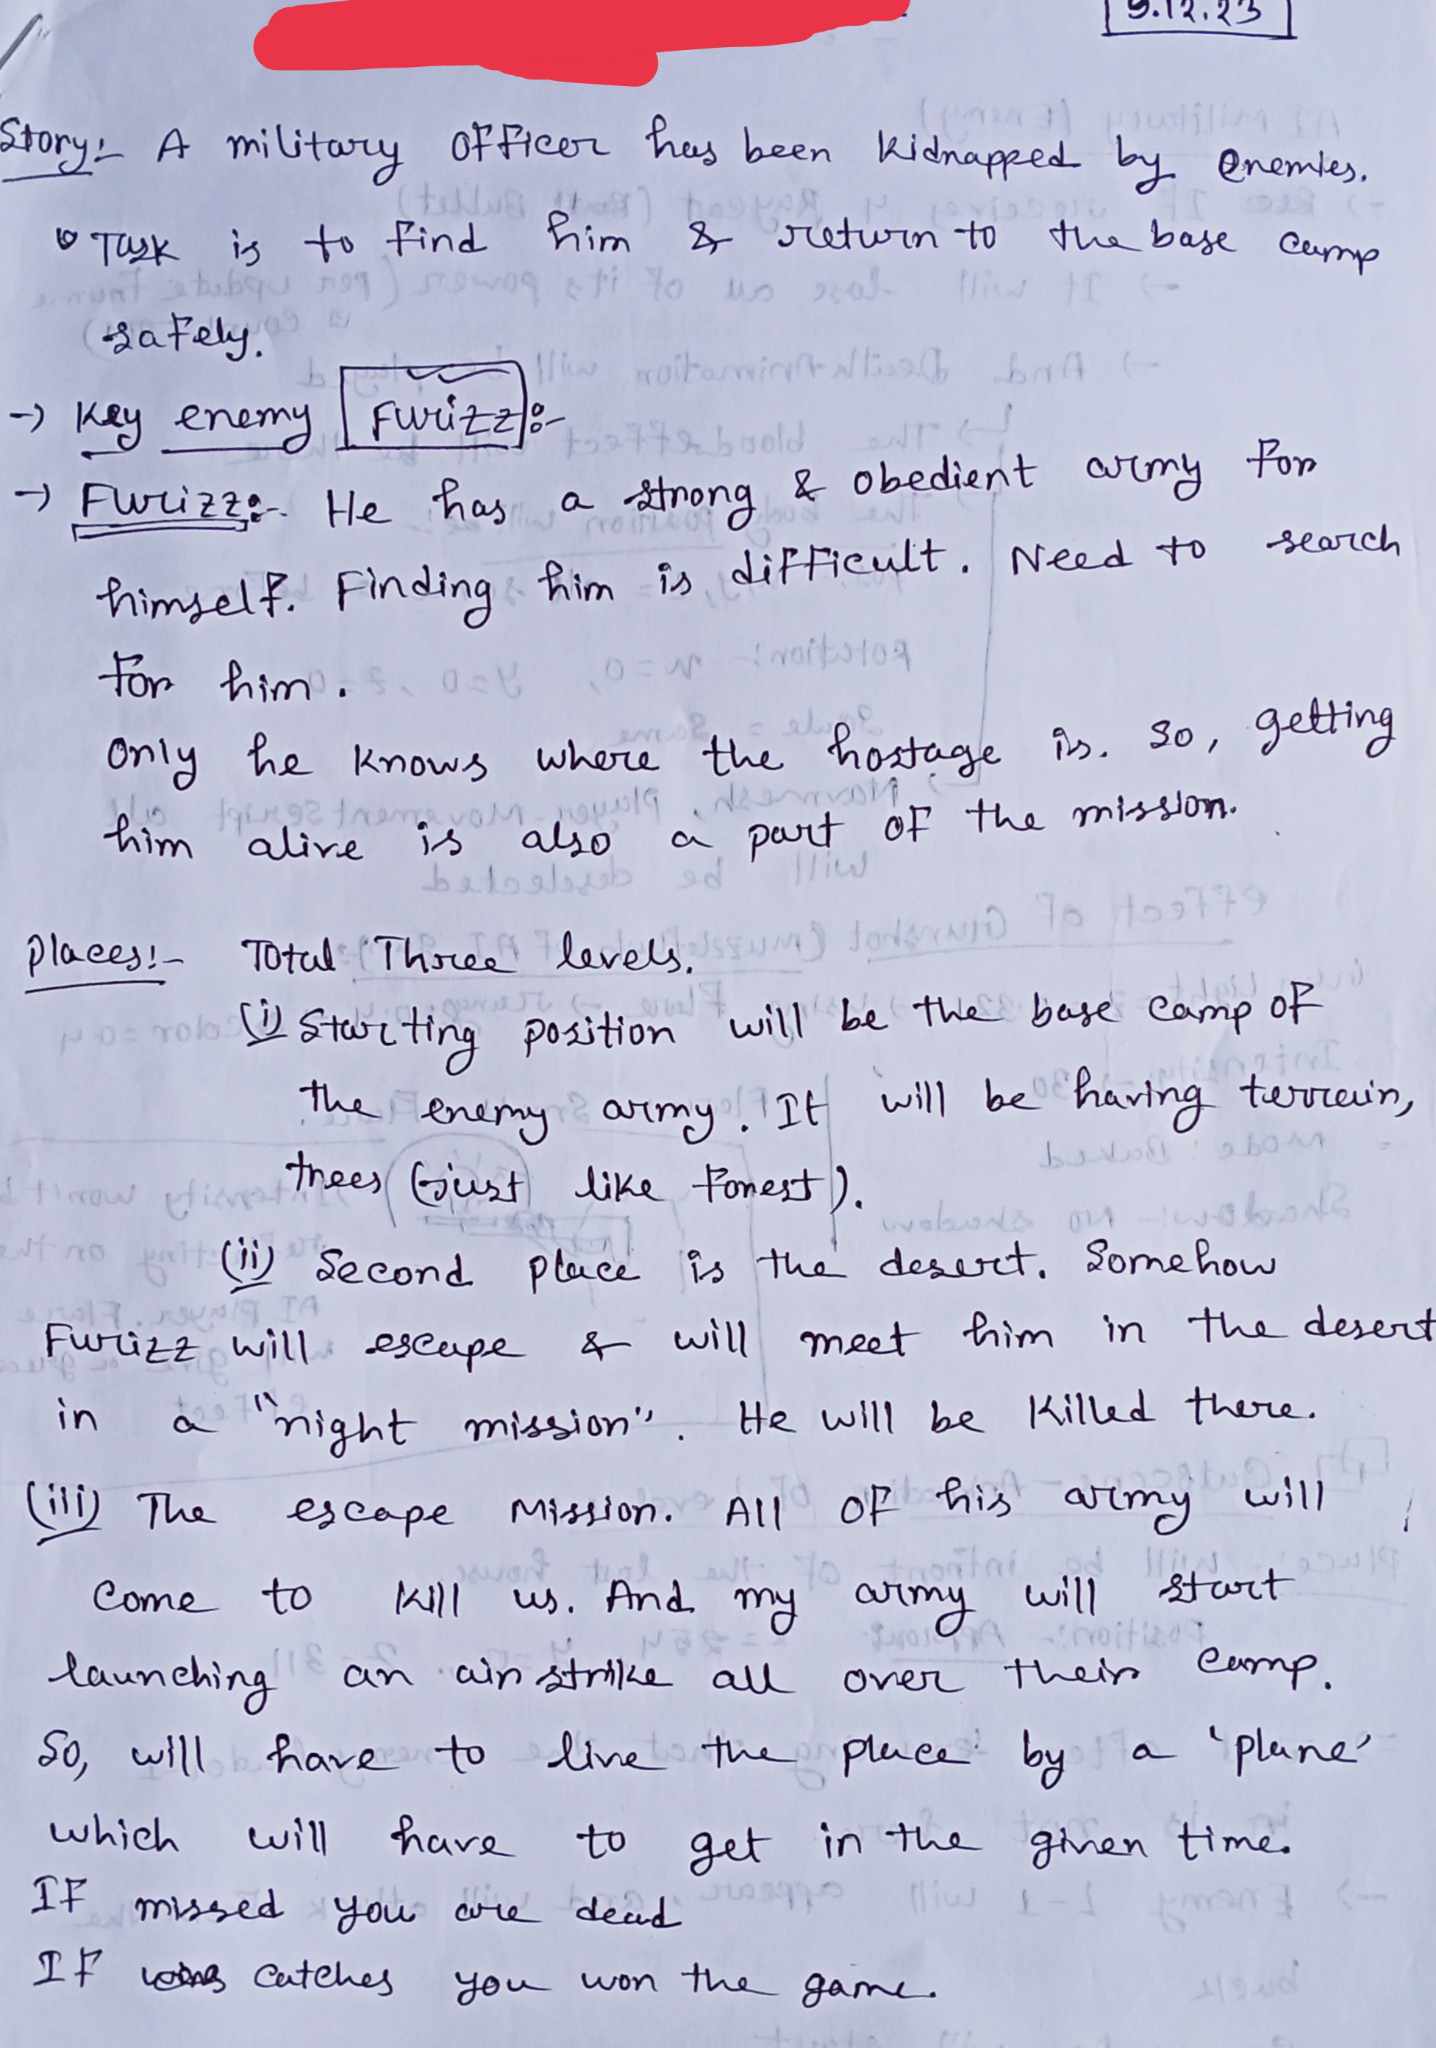 9.12.23
Story:- A military officer has been kidnapped by enemies.
Task is to find him & return to the base camp
safely.
-> Key enemy Furizz:-
-> Furizz:- He has a strong & obedient army for
himself. Finding him is difficult. Need to search
for him.
Only he knows where the hostage is. So, getting
him alive is also a part of the mission.
Places:- Total Three levels.
(i) Starting position will be the base camp of
the enemy army. It will be having terrain,
trees (just like forest).
(ii) Second place is the desert. Somehow
Furizz will escape & will meet him in the desert
in a "night mission". He will be killed there.
(iii) The escape Mission. All of his army will
come to kill us. And my army will start
launching an air strike all over their camp.
So, will have to live the place by a 'plane'
which will have to get in the given time.
If missed you are dead
If catches you won the game.